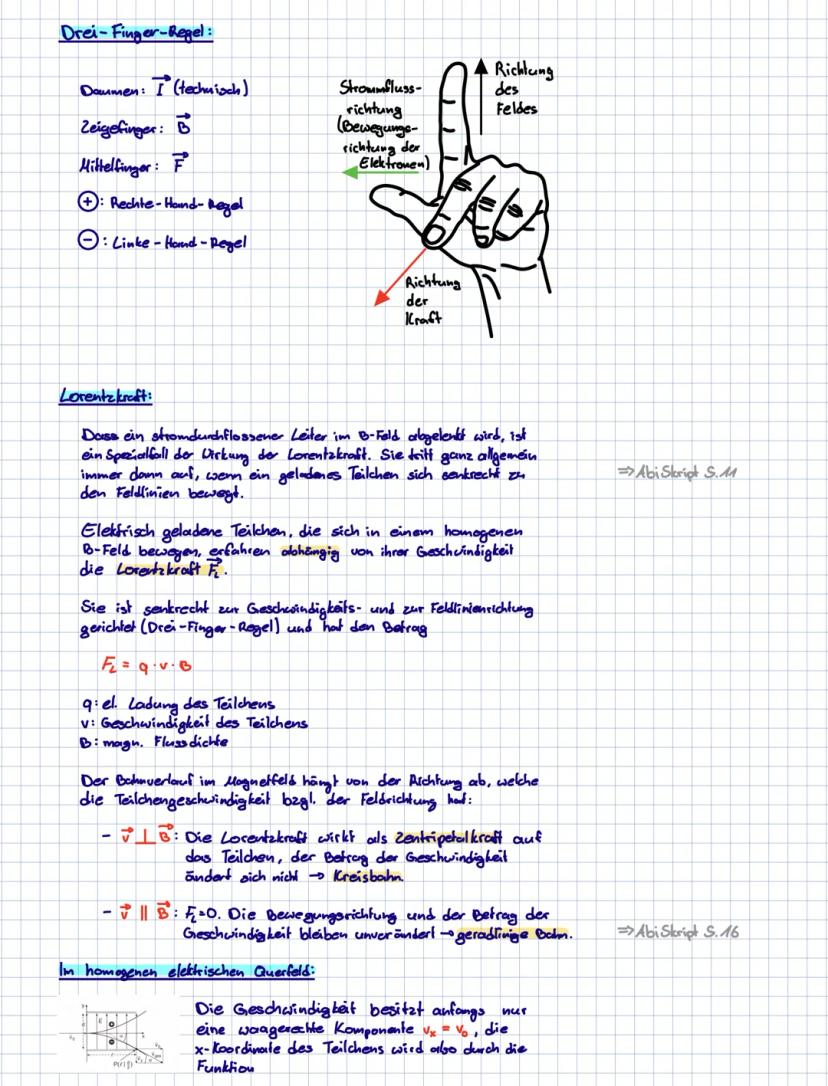 Drei-Finger-Regel:
Daumen: I (technisch)
Zeigefinger: B
Mittelfinger: F
+: Rechte-Hand-Regel
-: Linke-Hand-Regel
Stromfluss-
richtung
(Bewegungs-
richtung der
Elektronen)
Richtung
des
Feldes
Richtung
der
Kraft
Lorentzkraft:
Dass ein stromdurchflossener Leiter im B-Feld abgelenkt wird, ist
ein Spezialfall der Wirkung der Lorentzkraft. Sie tritt ganz allgemein
immer dann auf, wenn ein geladenes Teilchen sich senkrecht zu
den Feldlinien bewegt.
⇒ Abi Skript S. 11
Elektrisch geladene Teilchen, die sich in einem homogenen
B-Feld bewegen, erfahren abhängig von ihrer Geschwindigkeit
die Lorentzkraft F_L.
Sie ist senkrecht zur Geschwindigkeits- und zur Feldlinienrichtung
gerichtet (Drei-Finger-Regel) und hat den Betrag
F_L = q · v · B
q: el. Ladung des Teilchens
v: Geschwindigkeit des Teilchens
B: magn. Flussdichte
Der Bahnverlauf im Magnetfeld hängt von der Richtung ab, welche
die Teilchengeschwindigkeit bzgl. der Feldrichtung hat:
- v ⊥ B: Die Lorentzkraft wirkt als Zentripetalkraft auf
das Teilchen, der Betrag der Geschwindigkeit
ändert sich nicht → Kreisbahn.
- v || B: F_L=0. Die Bewegungsrichtung und der Betrag der
Geschwindigkeit bleiben unverändert → geradlinige Bahn.
⇒ Abi Skript S. 16
In homogenen elektrischen Querfeld:
Die Geschwindigkeit besitzt anfangs nur
eine waagerechte Komponente v_x = v_0, die
x-Koordinate des Teilchens wird also durch die
Funktion